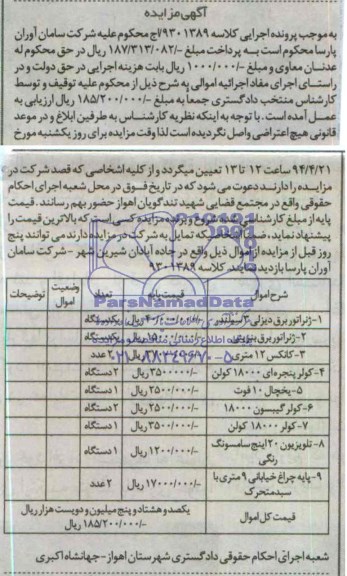 آگهی مزایده
به موجب پرونده اجرایی کلاسه ۹۳۰۱۳۸۹/ج محکوم علیه شرکت سامان آوران
پارسا محکوم است به پرداخت مبلغ -/۱۸۷/۳۱۳/۰۸۲ ریال در حق محکوم له
عدنان معاوی و مبلغ -/۱/۰۰۰/۰۰۰ ریال بابت هزینه اجرایی در حق دولت و در
راستای اجرای مفاد اجرائیه اموالی به شرح ذیل از محکوم علیه توقیف و توسط
کارشناس منتخب دادگستری جمعاً به مبلغ -/۱۸۵/۲۰۰/۰۰۰ ریال ارزیابی به
عمل آمده است. با توجه به اینکه نظریه کارشناس به طرفین ابلاغ و در موعد
قانونی هیچ اعتراضی واصل نگردیده است لذا وقت مزایده برای روز یکشنبه مورخ
۹۴/۴/۲۱ ساعت ۱۲ تا ۱۳ تعیین میگردد و از کلیه اشخاصی که قصد شرکت در
مزایده را دارند دعوت می شود که در تاریخ فوق در محل شعبه اجرای احکام
حقوقی واقع در مجتمع قضایی شهید تندگویان اهواز حضور بهم رسانند. قیمت
پایه از مبلغ کارشناسی شده شروع و برنده مزایده کسی است که بالاترین قیمت را
پیشنهاد نماید، کسانیکه تمایل به شرکت در مزایده دارند می توانند پنج
روز قبل از مزایده از اموال ذیل واقع در جاده آبادان شیرین شهر - شرکت سامان
آوران پارسا بازدید نمایند. کلاسه ۹۳۰۱۳۸۹
شرح اموال قیمت پایه تعداد وضعیت اموال توضیحات
۱-ژنراتور برق دیزلی ۳ سیلندر ریال یکدستگاه
۲-ژنراتور برق ریال یکدستگاه
۳-کانکس ۱۲ متری ریال ۲ عدد
۴-کولر پنجره‌ای ۱۸۰۰۰ کولن ۳۵۰۰۰۰۰ ریال ۲ دستگاه
۵-یخچال ۱۰ فوت -/۲۵۰۰/۰۰۰ ریال ۱ دستگاه
۶-کولر گیبسون ۱۸۰۰۰ -/۲۵۰۰/۰۰۰ ریال ۲ دستگاه
۷-کولر ۱۸۰۰۰ کولن -/۳۵۰۰/۰۰۰ ریال ۱ دستگاه
۸-تلویزیون ۲۰ اینچ سامسونگ رنگی -/۱۲۰۰/۰۰۰ ریال ۱ دستگاه
۹-پایه چراغ خیابانی ۹ متری با سبد متحرک -/۱۷۰۰۰/۰۰۰ ریال ۲ عدد
قیمت کل اموال یکصد و هشتاد و پنج میلیون و دویست هزار ریال
-/۱۸۵/۲۰۰/۰۰۰ ریال
شعبه اجرای احکام حقوقی دادگستری شهرستان اهواز - جهانشاه اکبری
ParsNamadData
۰۲۱-۸۸۳۴۹۶۷۰-۵